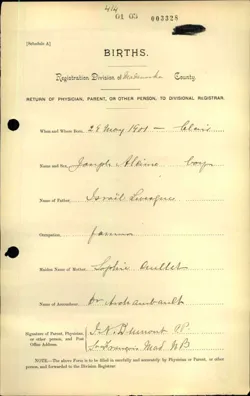 414
01 03 003328
[Schedule A]
BIRTHS.
Registration Division of Madawaska County.
RETURN OF PHYSICIAN, PARENT, OR OTHER PERSON, TO DIVISIONAL REGISTRAR.
When and Where Born, 28 May 1901 — Clair
Name and Sex, Joseph Albine boy
Name of Father, Israël Levesque
Occupation, farmer
Maiden Name of Mother, Sophie Ouellet
Name of Accoucheur, Dr Archambault
Signature of Parent, Physician, or other person, and Post Office Address. J. N. Dumont
St François Mad. NB
NOTE.—The above Form is to be filled in carefully and accurately by Physician or Parent, or other person, and forwarded to the Division Registrar